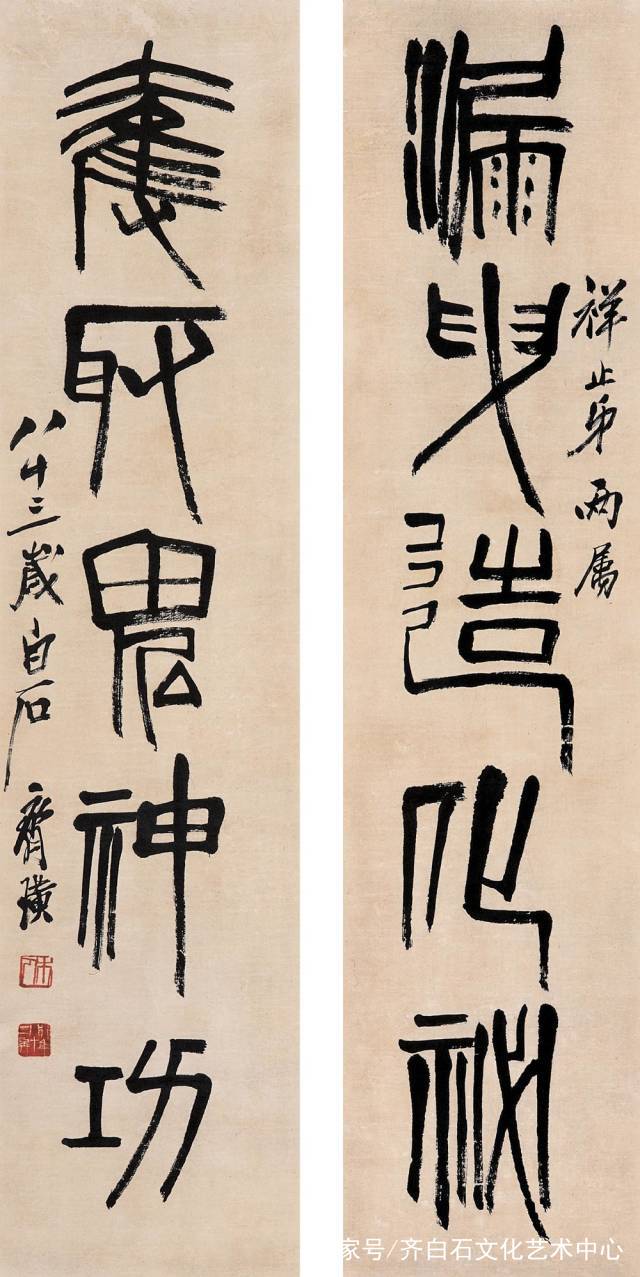 漏曳造化祕
祥止弟两属
奪取鬼神功
八十三歲白石齊璜
家号/齐白石文化艺术中心